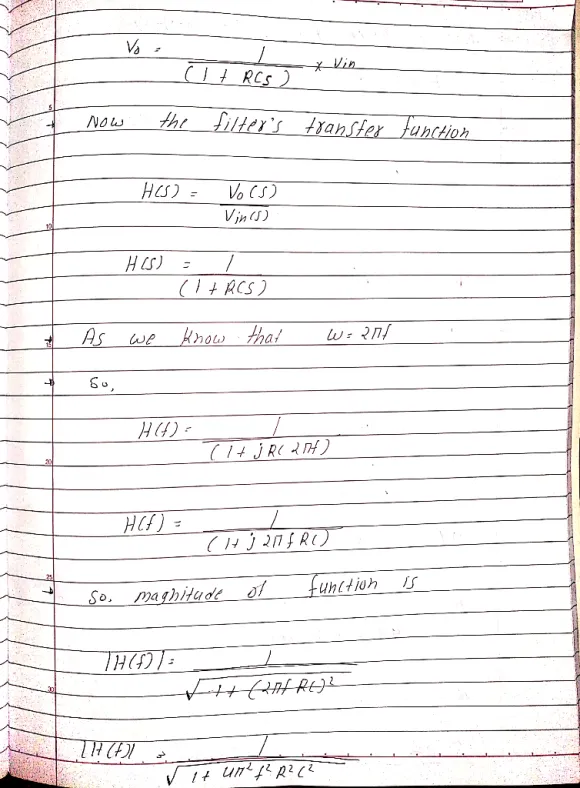 V₀ = 1 / (1 + RCs) × Vin
5
→ Now the filter's transfer function
H(S) = V₀(S) / Vin(S)
10
H(S) = 1 / (1 + RCS)
→ As we know that ω = 2πf
15
→ So,
H(f) = 1 / (1 + jRC2πf)
20
H(f) = 1 / (1 + j2πfRC)
25
→ So, magnitude of function is
|H(f)| = 1 / √(1 + (2πfRC)²)
30
|H(f)| = 1 / √(1 + 4π²f²R²C²)